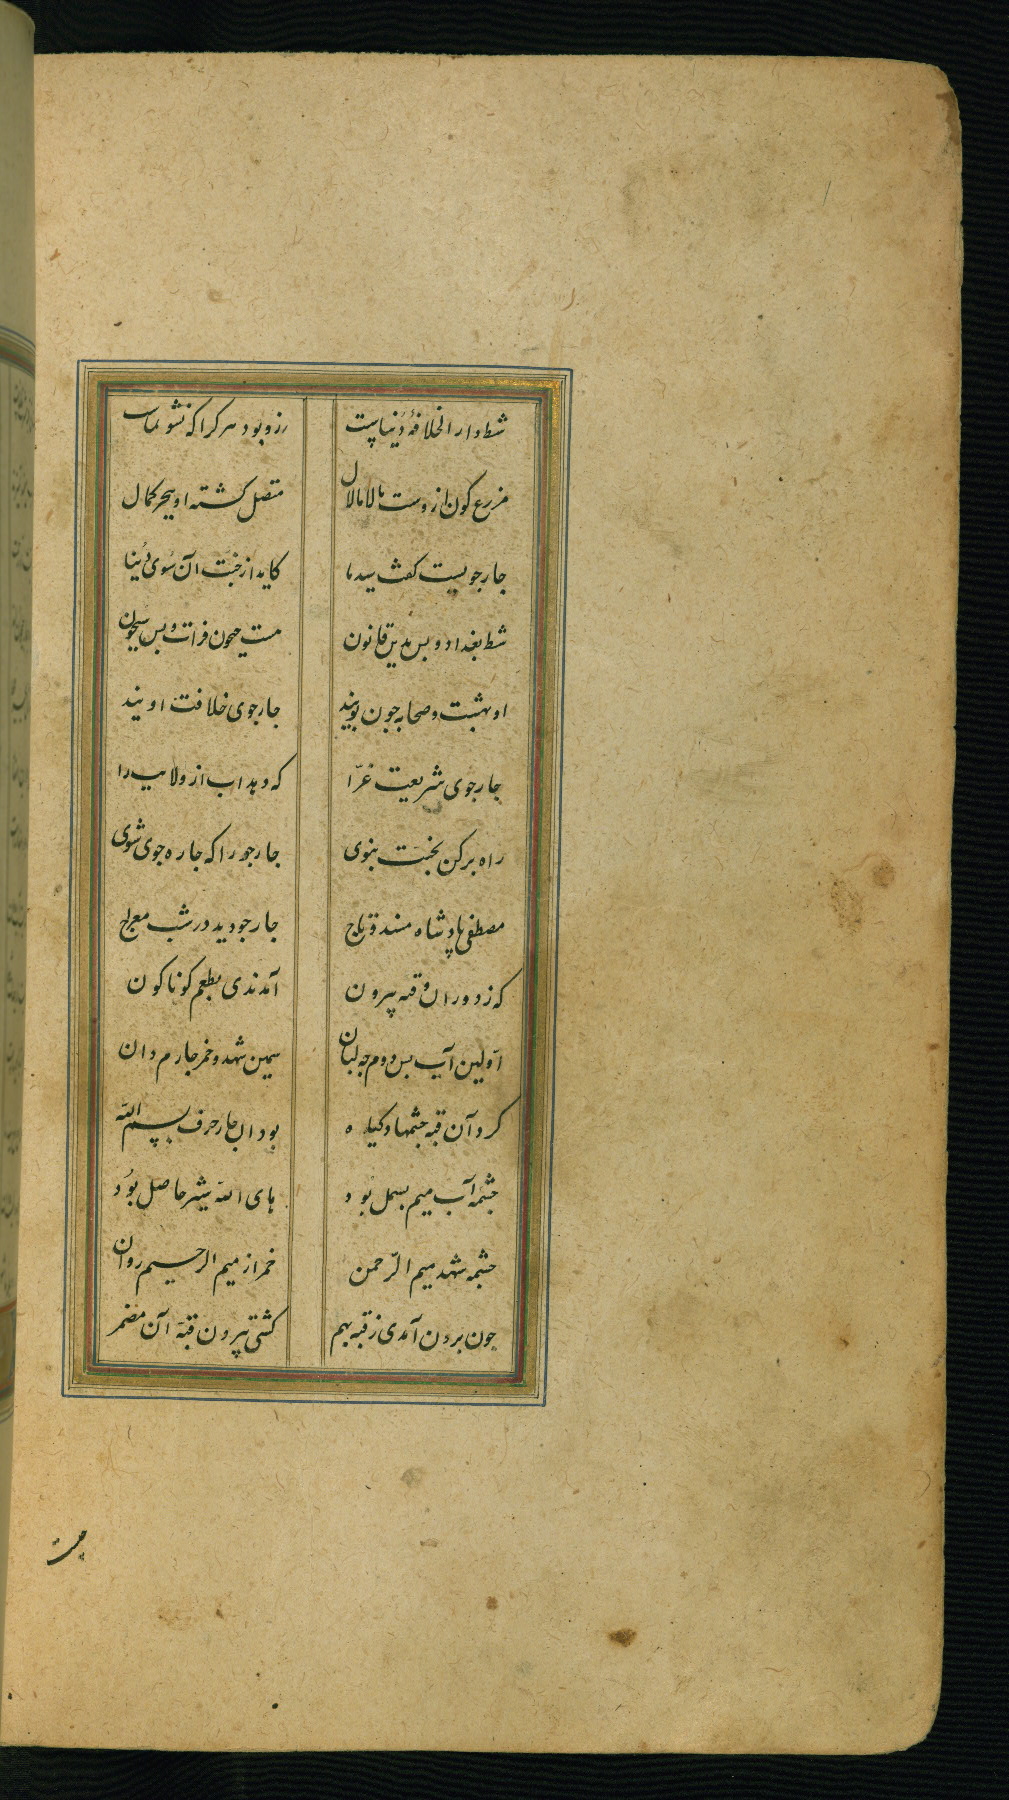 شط دار الخلافهٔ دُنیاست رزو بود هر کرا که نشو نماست
مزرع کون ازوست مالامال متصل کشته او ببحر کمال
جار جویست کفت سیدما کاید از جنّت آن سُوی دُنیا
شط بغداد و بس بدین قانون هست جیحون فرات و بس سیحون
او بهشت و صحابه جون بویند جار جوی خلافت اویند
جار جوی شریعت غرّا که دهد اب از ولایت را
راه بر کن بجنّت نبوی جار جو را که جاره جوی شوی
مصطفی پادشاه مسند و تاج جار جو دید در شب معراج
که ز دوران و قبه بیرون آمدندی بطعم کوناکون
اوّلین آب بس دوم جه لبان سیمین شهد و خمر جارم دان
کرد آن قبه جشمها و کیاه بود ان جار حرف بسم الله
جشمهٔ آب میم بسمل بُود های الله شیر حاصل بُود
جشمه شهد میم الرّحمن خمر از میم الرحیم روان
جون برون آمدی ز قبه بهم کشتی بیرون قبّه آن مضمر